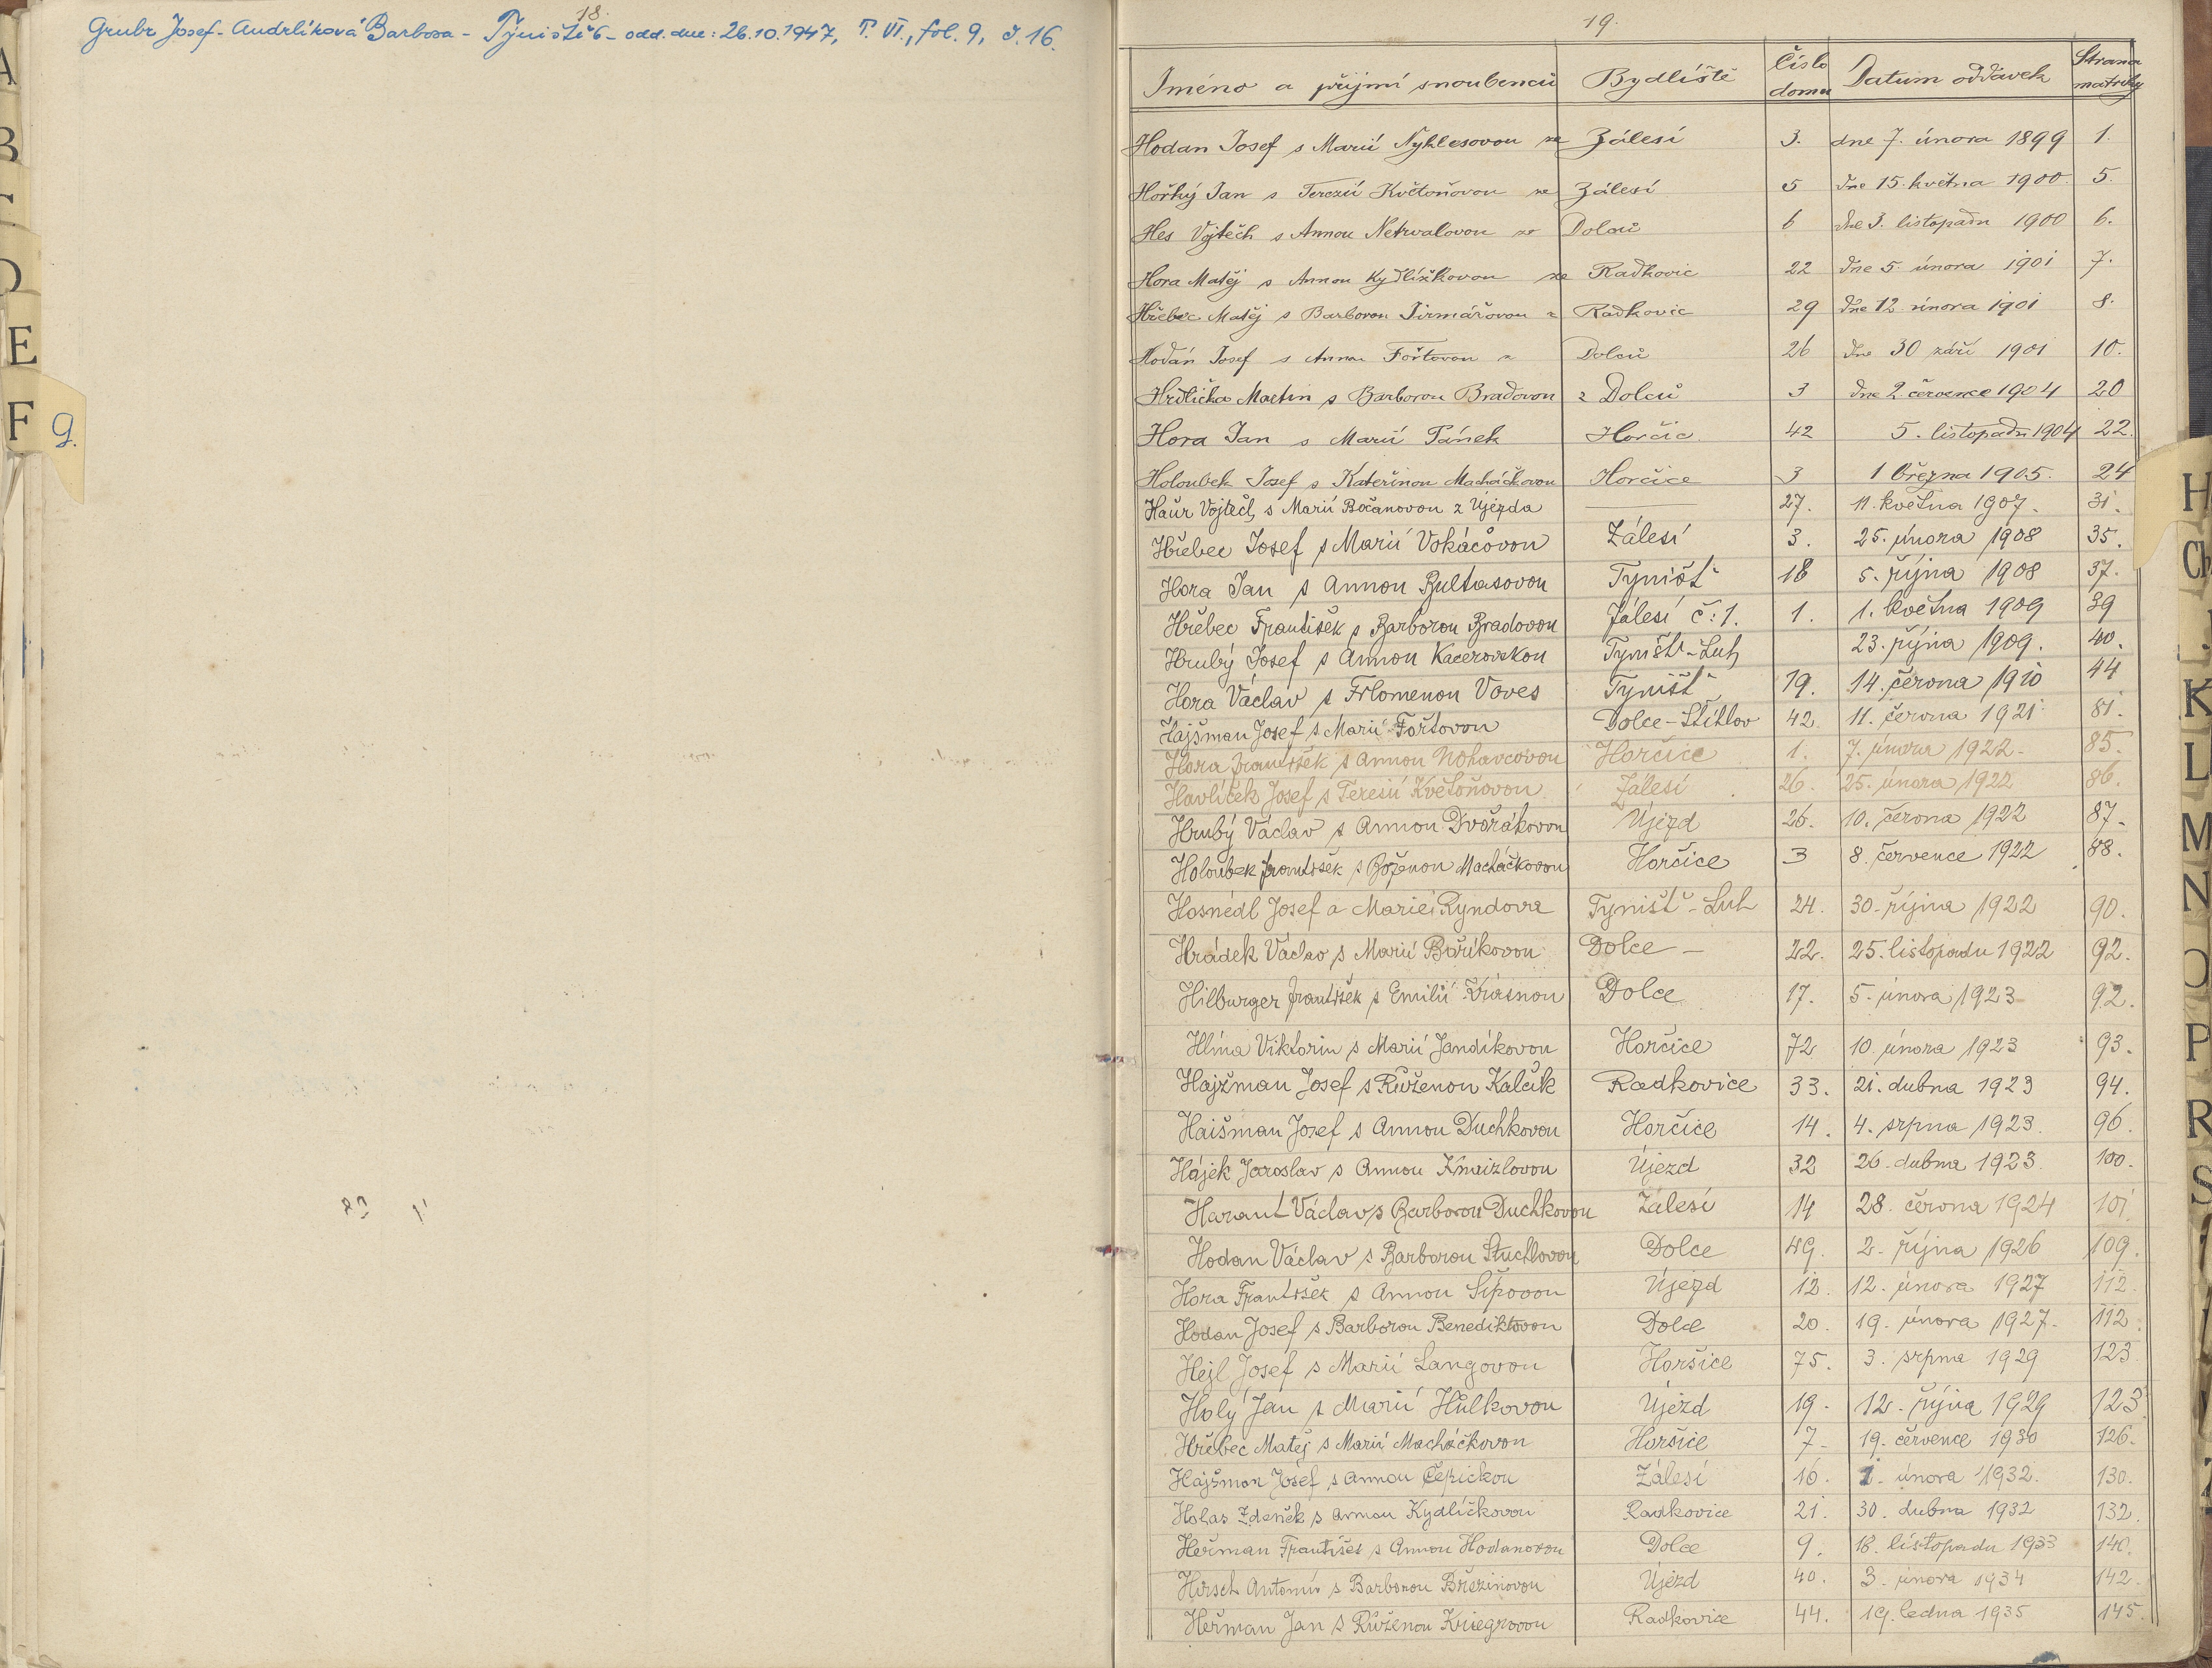 18.
Grubr Josef - Andrlíková Barbora - Týniště 6 - odd. dne: 26.10.1947, T. VI., fol. 9, č. 16.
A
B
E
F
G.
19.
Jméno a příjmí snoubenců Bydliště číslo domu Datum oddavek Strana matriky
Hodan Josef s Marií Nyklesovou ze Zálesí 3. dne 7. února 1899 1.
Hořký Jan s Terezií Květoňovou ze Zálesí 5 dne 15. května 1900. 5.
Hes Vojtěch s Annou Netrvalovou ze Dolců 6 dne 3. listopadu 1900 6.
Hora Matěj s Annou Kydlíčkovou ze Radkovic 22 dne 5. února 1901 7.
Hřebec Matěj s Barborou Jirmářovou z Radkovic 29 dne 12 února 1901 8.
Hodan Josef s Annou Fořtovou z Dolců 26 dne 30 září 1901 10.
Hrdlička Martin s Barborou Bradovou z Dolců 3 dne 2. července 1904 20
Hora Jan s Marií Pánek Horčic 42 5. listopadu 1904 22.
Holoubek Josef s Kateřinou Macháčkovou Horčice 3 1 března 1905. 24
Haur Vojtěch s Marií Bočanovou z Újezda 27. 11. května 1907. 31.
Hřebec Josef s Marií Vokáčovou Zálesí 3. 25. února 1908 35.
Hora Jan s Annou Bultasovou Tyništ 18 5. října 1908 37.
Hřebec František s Barborou Bradovou Zálesí č: 1. 1. 1. května 1909 39
Hrubý Josef s Annou Kacerovskou Tyništ-Luh 23. října 1909. 40.
Hora Václav s Filomenou Voves Tyništ 19. 14. června 1910 44
Hajšman Josef s Marií Fořtovou Dolce-Štítlov 42 11. června 1921 81.
Hora František s Annou Nohavcovou Horčice 1. 7. února 1922. 85.
Havlíček Josef s Teresií Květoňovou Zálesí 26. 25. února 1922 86.
Hrubý Václav s Annou Dvořákovou Újezd 26. 10. června 1922 87.
Holoubek František s Boženou Macháčkovou Horčice 3 8. července 1922 88.
Hosnédl Josef a Marie Ryndova Tyništ-Luh 24. 30. října 1922 90.
Hrádek Václav s Marií Baříkovou Dolce - 22. 25. listopadu 1922 92.
Hilburger František s Emilií Krásnou Dolce 17. 5. února 1923 92.
Hlína Viktorin s Marií Jandíkovou Horčice 72 10. února 1923 93.
Hajžman Josef s Růženou Kalčík Radkovice 33. 21. dubna 1923 94.
Haišman Josef s Annou Duchkovou Horčice 14. 4. srpna 1923. 96.
Hájek Jaroslav s Annou Knaizlovou Újezd 32 26. dubna 1923. 100.
Harant Václav s Barborou Duchkovou Zálesí 14 28. června 1924 101.
Hodan Václav s Barborou Štuchlovou Dolce 49. 2. října 1926 109.
Hora František s Annou Šípovou Újezd 12. 12. února 1927 112.
Hodan Josef s Barborou Benediktovou Dolce 20. 19. února 1927. 112
Hejl Josef s Marií Langovou Horšice 75. 3. srpna 1929 123
Holý Jan s Marií Hůlkovou Újezd 19. 12. října 1929 123
Hřebec Matěj s Marií Macháčkovou Horšice 7. 19. července 1930 126.
Hajšman Josef s Annou Čepickou Zálesí 16. 1. února 1932. 130.
Holas Zdeněk s Annou Kydlíčkovou Radkovice 21. 30. dubna 1932 132.
Heřman František s Annou Hodanovou Dolce 9. 18. listopadu 1933 140.
Hirsch Antonín s Barborou Březinovou Újezd 40. 3. února 1934 142.
Heřman Jan s Růženou Kriegrovou Radkovice 44. 19. ledna 1935 145.
H
Ch
K
L
M
N
O
P
R
S